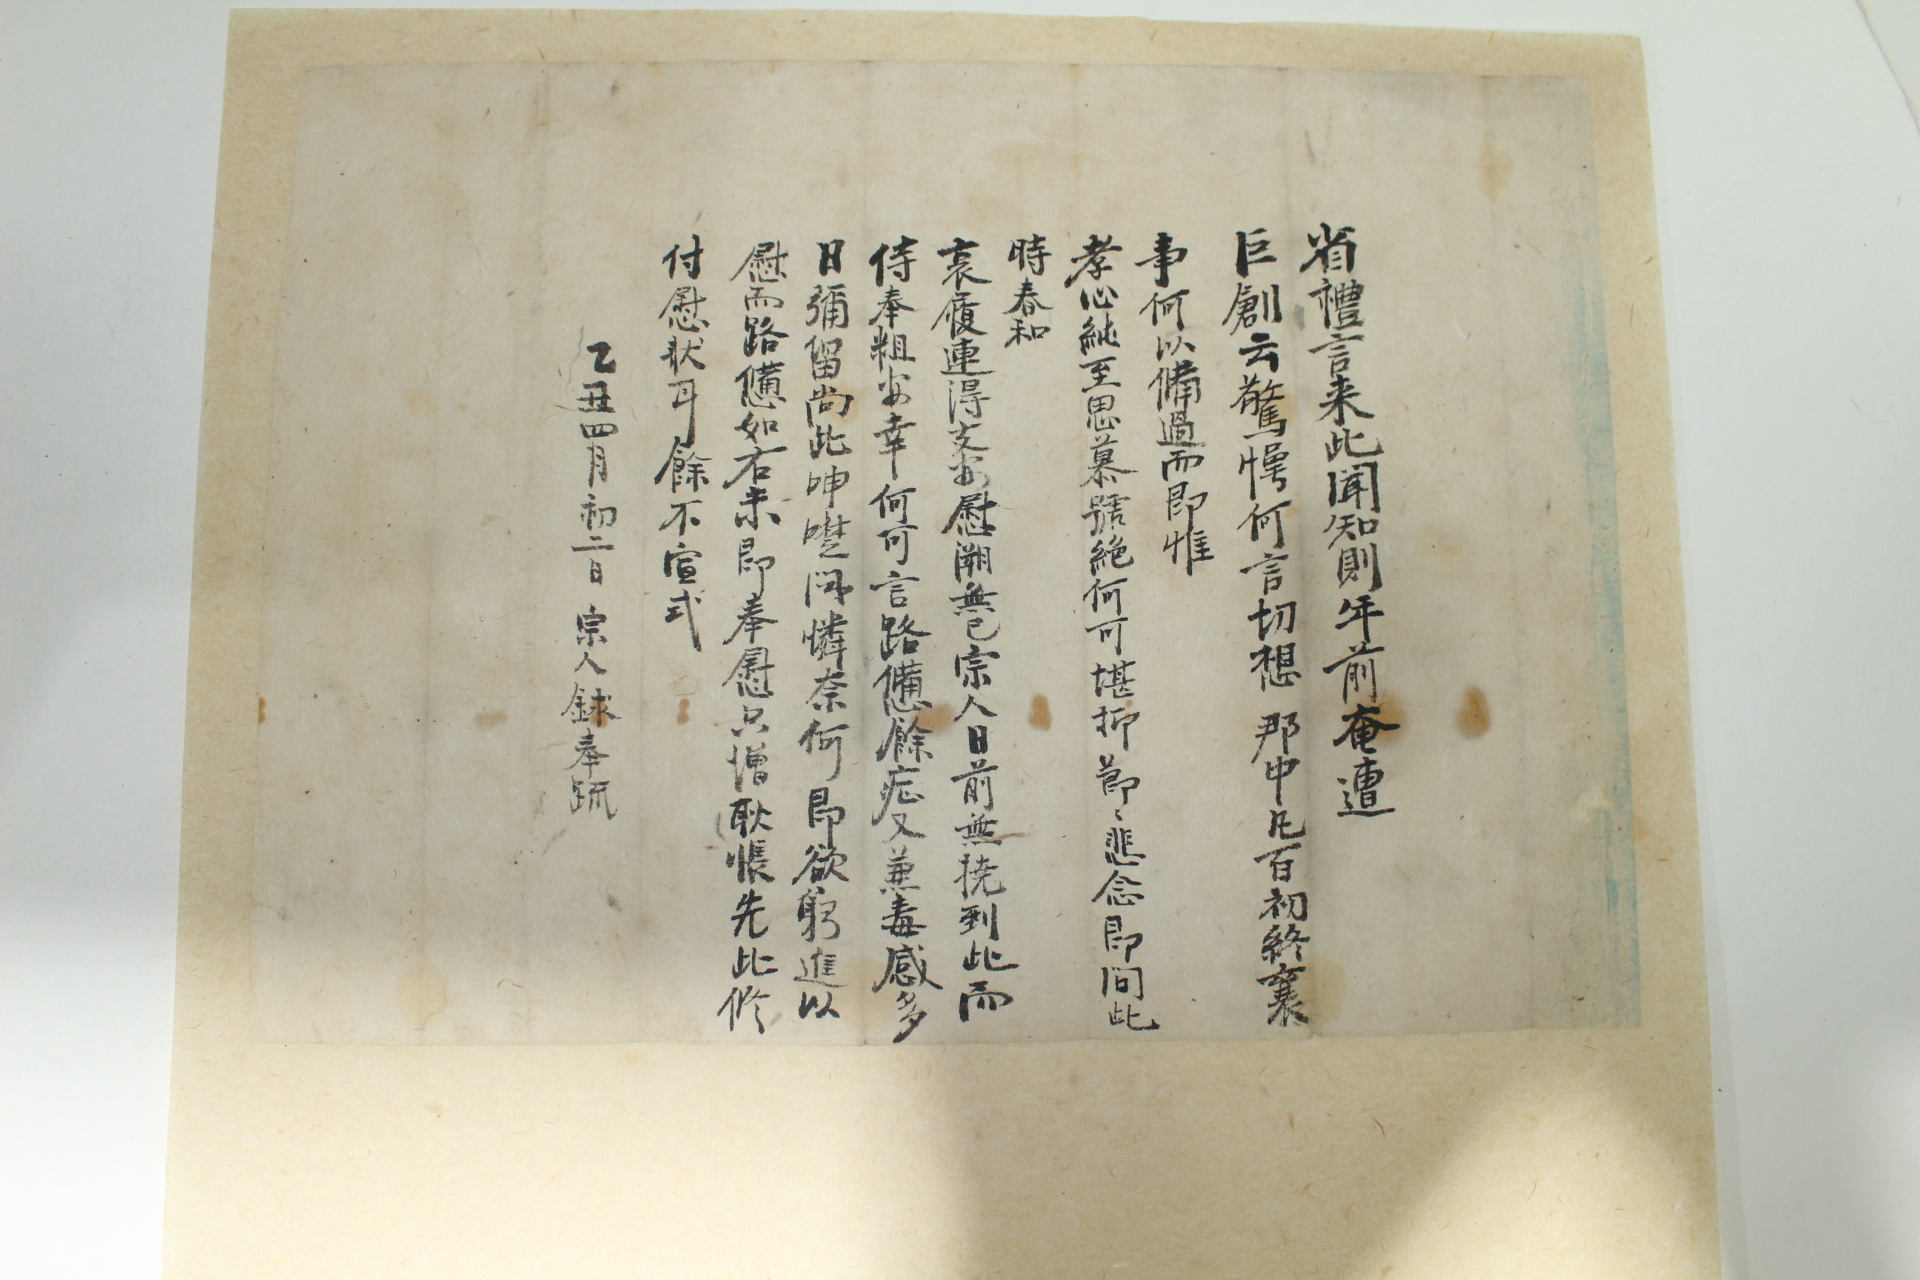 省禮言来此聞知則年前奄遭
巨創云驚愕何言切想 那中凡百初終襄
事何以備過而卽惟
孝心純至思慕號絶何可堪抑節〻悲念卽間此
時春和
哀履連得支安慰溯無已宗人日前無撓到此而
侍奉粗安幸何可言路憊餘疟又兼毒感多
日彌留尚此呻囈悶憐奈何卽欲躬進以
慰而路憊如右未卽奉慰只增耿悵先此修
付慰狀耳餘不宣式
乙丑四月初二日 宗人銶奉疏